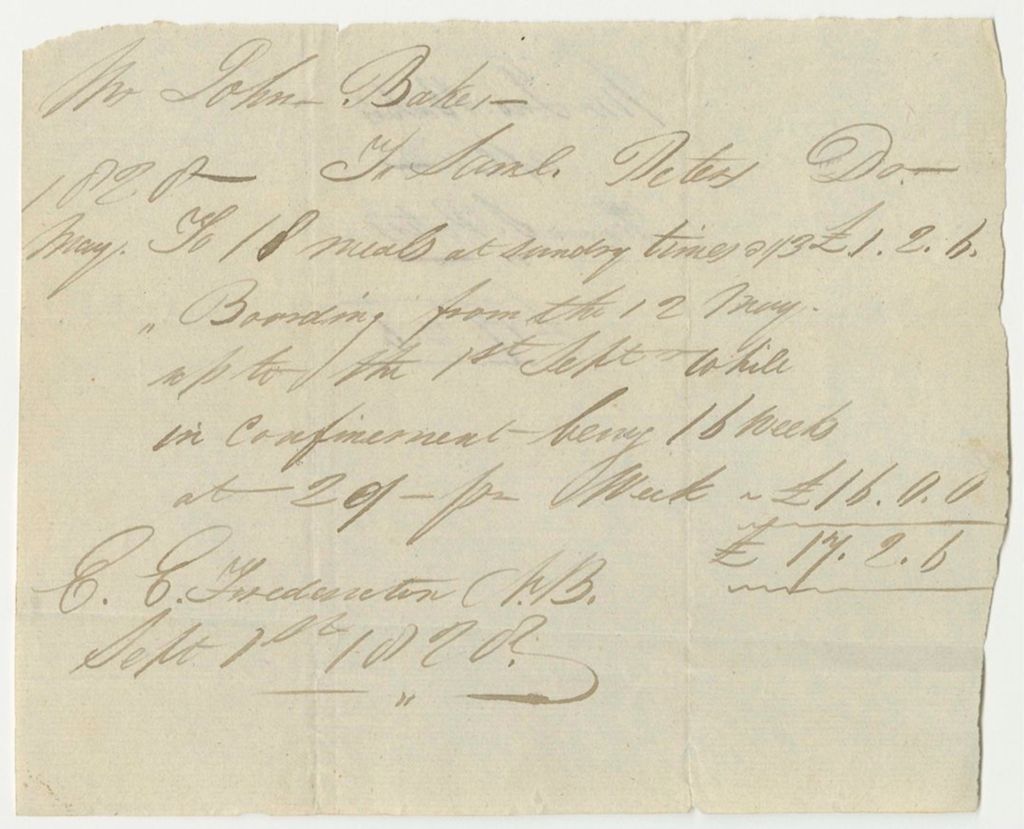 Mr John Baker
1828 To Saml. Peters Dr.
May. To 18 meals at sundry times 1/3 £1.2.6.
" Boarding from the 12 May.
up to the 1st Sept while
in confinement being 16 weeks
at 20/- pr Week ~ £16.0.0
£17.2.6
E. E. Fredericton N.B.
Sept 1st 1828.
"